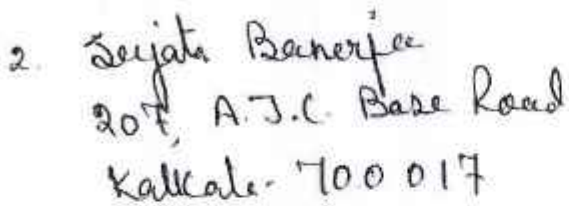 2. Sujata Banerjee
207, A.J.C. Base Road
Kalkale - 700 017